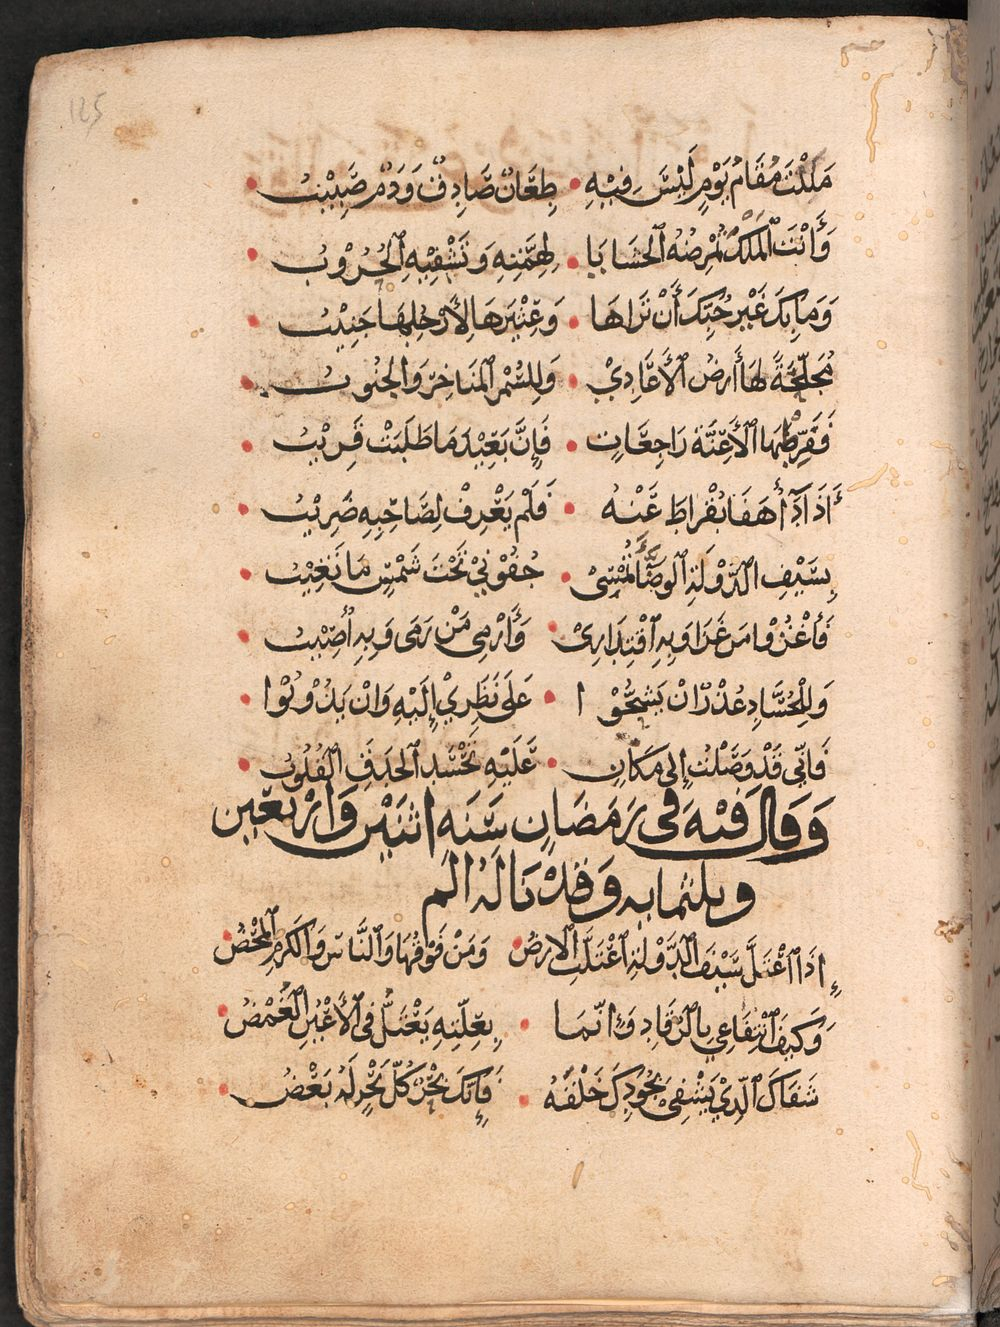 125
مَلِلْتَ مُقَامَ يَوْمٍ لَيْسَ فِيْهِ • طِعَانٌ صَادِقٌ وَدَمٌ صَبِيْبُ
وَأَنْتَ الْمَلْكُ تُمْرِضُهُ الْحَشَايَا • لِهِمَّتِهِ وَتَشْفِيْهِ الْحُرُوْبُ
وَمَا بِكَ غَيْرُ حُبِّكَ أَنْ تَرَاهَا • وَعِثْيَرُهَا لِأَرْجُلِهَا جَنِيْبُ
مُجَلِّحَةً لَهَا أَرْضُ الْأَعَادِيْ • وَلِلسُّمْرِ الْمَنَاخِرُ وَالْجُنُوبُ
فَقَرِّطْهَا الْأَعِنَّةَ رَاجِعَاتٍ • فَإِنَّ بَعِيْدَ مَا طَلَبَتْ قَرِيْبُ
أَذَا دَآءٌ هَفَا بُقْرَاطُ عَنْهُ • فَلَمْ يَعْرِفْ لِصَاحِبِهِ ضَرِيْبُ
بِسَيْفِ الدَّوْلَةِ الْوَضَّاءِ تُمْسِيْ • جُفُوْنِيْ تَحْتَ شَمْسٍ مَا تَغِيْبُ
فَأَغْزُوْا مَنْ غَزَا وَبِهِ اقْتِدَارِيْ • وَأَرْمِي مَنْ رَمَى وَبِهِ أُصِيْبُ
وَلِلْحُسَّادِ عُذْرٌ انْ يَشِحُّوْا • عَلَى نَظَرِيْ إِلَيْهِ وَانْ يَذُوْبُوْا
فَاِنِّي قَدْ وَصَلْتُ إِلى مَكَانٍ • عَلَيْهِ تَحْسُدُ الْحَدَقَ الْقُلُوبُ
وَقَالَ فِيْهِ فِي رَمَضَانَ سَنَةِ اثْنَيْنِ وَأَرْبَعِين
وثلثمايه وَقَدْ نَالَهُ أَلَم
إِذَا اعْتَلَّ سَيْفُ الدَّوْلَةِ اعْتَلَّتِ الْارْضُ • وَمَنْ فَوْقَهَا وَالنَّاسُ وَالْكَرَمُ الْمَحْضُ
وَكَيْفَ انْتِفَاعِي بِالرُّقَادِ وَإِنَّمَا • بِعِلَّتِهِ يَعْتَلُّ فِي الْأَعْيُنِ الْغُمْضُ
شَفَاكَ الَّذِيْ يَشْفِيْ بِجُوْدِكَ خَلْقَهُ • فَإِنَّكَ بَحْرٌ كُلُّ بَحْرٍ لَهُ بَعْضُ